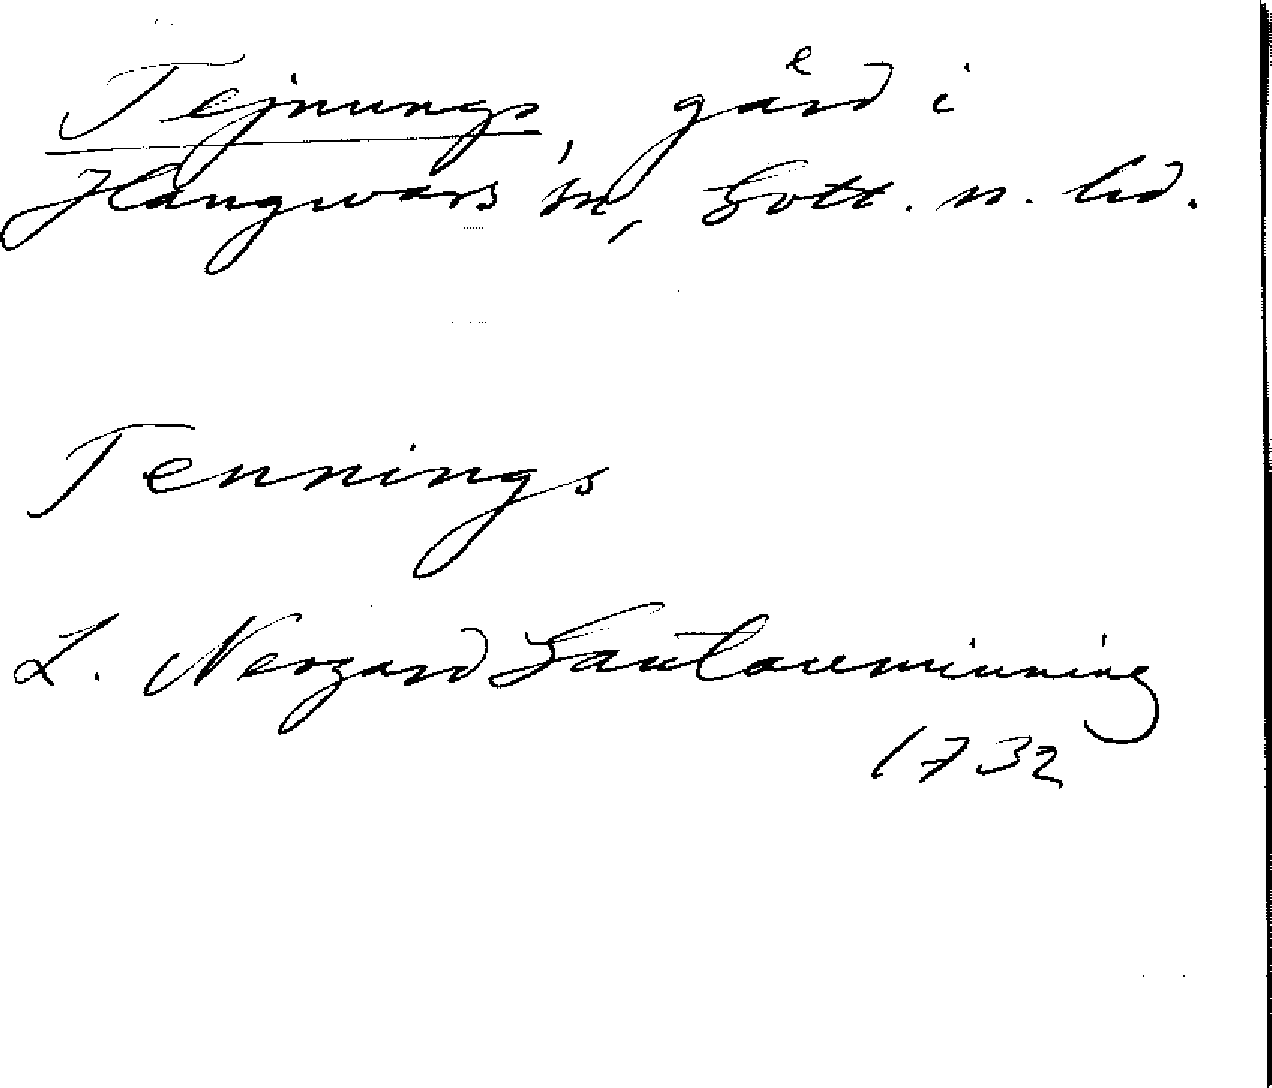 Tejnungs, gård i
Hangwars sn, Gotl. n. hd.
Tennings
L. Nergard Gautauminning
1732